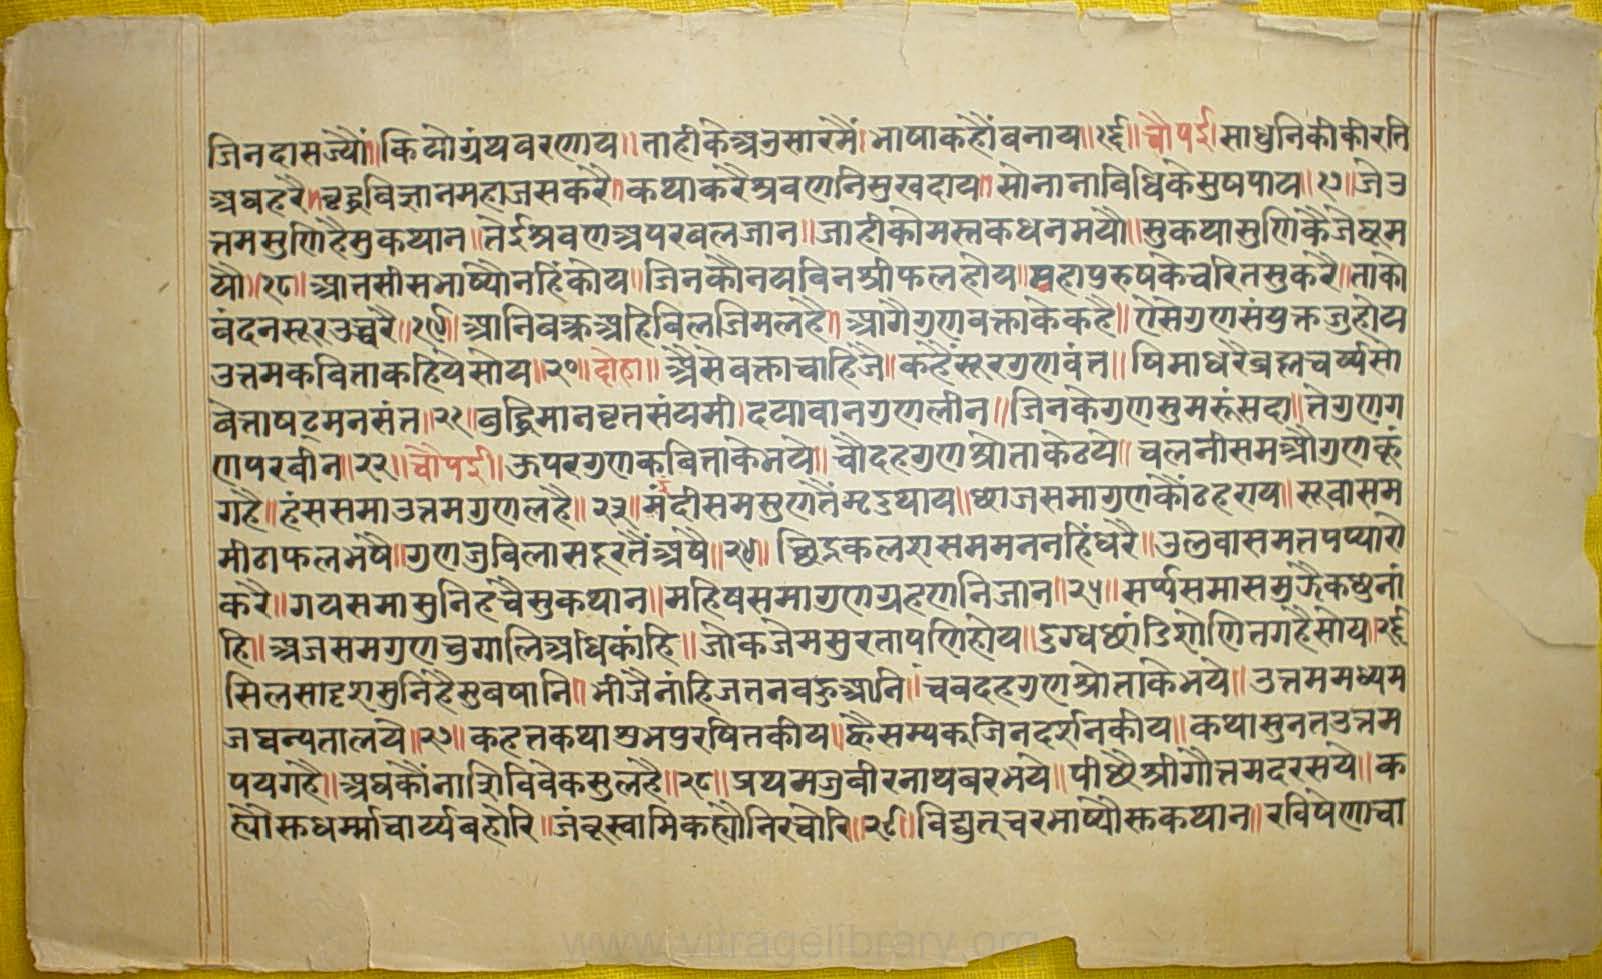 जिनदासज्यौं॥कियोग्रंथवरणाय॥ताहीकेअनुसारमैं।भाषाकहौंबनाय॥१६॥चौपई।साधुनिकीकीरति
अघहरै॥वृद्धविज्ञानमहाजसकरै॥कथाकरैश्रवणनिसुखदाय॥सोनानाविधिकेसुषपाय॥१७॥जेउ
त्तमसुणिहैसुकथान॥तेईश्रवणअपरबलजान॥जाहीकौमस्तकधनमयौ॥सुकथासुणिकैजेघूम
यौ॥१८॥आतसीसभाष्यौनहिंकोय॥जिनकौनयविनश्रीफलहोय॥महापुरुषकेचरितसुकरै॥ताको
वंदनसूरउच्चरै॥१९॥आनिवक्रअहिविलजिमलहै॥आगैगुणवक्ताकेकहै॥ऐसेगुणसंयुक्तजुहोय
उत्तमकविताकहियेसोय॥२०॥दोहा॥असैवक्ताचाहिजै॥कहैंसूरगुणवंत॥षिमाधरैब्रह्मचर्य्यसो
वेत्ताषट्मनसंत॥२१॥बुद्धिमानवृतसंयमी।दयावानगुणलीन॥जिनकेगुणसुमरूंसदा॥तेगुणग
णपरवीन॥२२॥चौपई॥ऊपरगुणकविताकेभये॥चौदहगुणश्रोताकेठये॥चलनीसमऔगुणकूं
गहै॥हंससमाउत्तमगुणलहै॥२३॥मंदीसमसुणतैंमृडथाय॥ध्याजसमागुणकौंठहराय॥सूवासम
मीठाफलभषै॥गुणजुबिलासहरतैंअषै॥२४॥छिद्रकलशसममननहिंधरै॥उलवासमतपप्यारो
करै॥गयसमासुनिहचैसुकथान॥महिषसमागुणग्रहणनिजान॥२५॥सर्प्पसमासमुझैकछुनां
हि॥अजसमगुणचुगालिअधिकांहि॥जोकजेमसुरतापणिहोय॥डग्धछांडिशोणितगहैसोय॥२६
सिलसादृशसुनिहैसुवषानि॥भीजैनांहिजतनवहुआनि॥चवदहगुणश्रोताकेभये॥उत्तममध्यम
जघन्यतालये॥२७॥कहतकथाशुभपुरषितकीय॥ह्वैसम्यकजिनदर्शनकीय॥कथासुनतउत्तम
पयगहै॥अघकौंनाशिविवेकसुलहै॥२८॥प्रथमजुवीरनाथबरभये॥पीछैश्रीगौत्तमदरसये॥क
ह्यौसुधर्म्माचार्य्यबहोरि॥जंबूस्वामिकह्यौनिरचोरि॥२९॥विद्युत्चरभाष्यौसुकथान॥रविषेणाचा